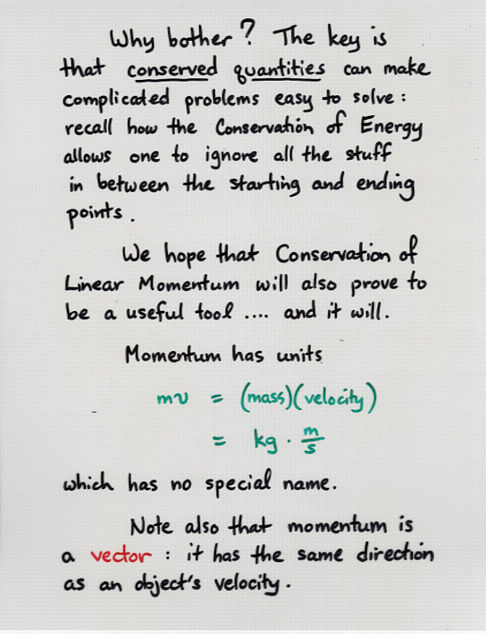 Why bother? The key is
that conserved quantities can make
complicated problems easy to solve:
recall how the Conservation of Energy
allows one to ignore all the stuff
in between the starting and ending
points.
We hope that Conservation of
Linear Momentum will also prove to
be a useful tool .... and it will.
Momentum has units
mv = (mass)(velocity)
= kg · m/s
which has no special name.
Note also that momentum is
a vector : it has the same direction
as an object's velocity.